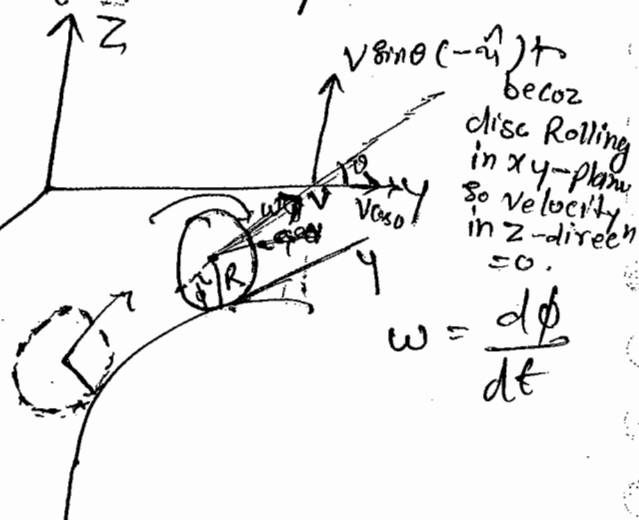 Z
V sinθ (-x̂) +
becoz
disc Rolling
in xy-plane
so velocity
in Z-direcn
=0.
θ
y
V
Vcosθ
ω
R
φ
y
ω = dφ/dt